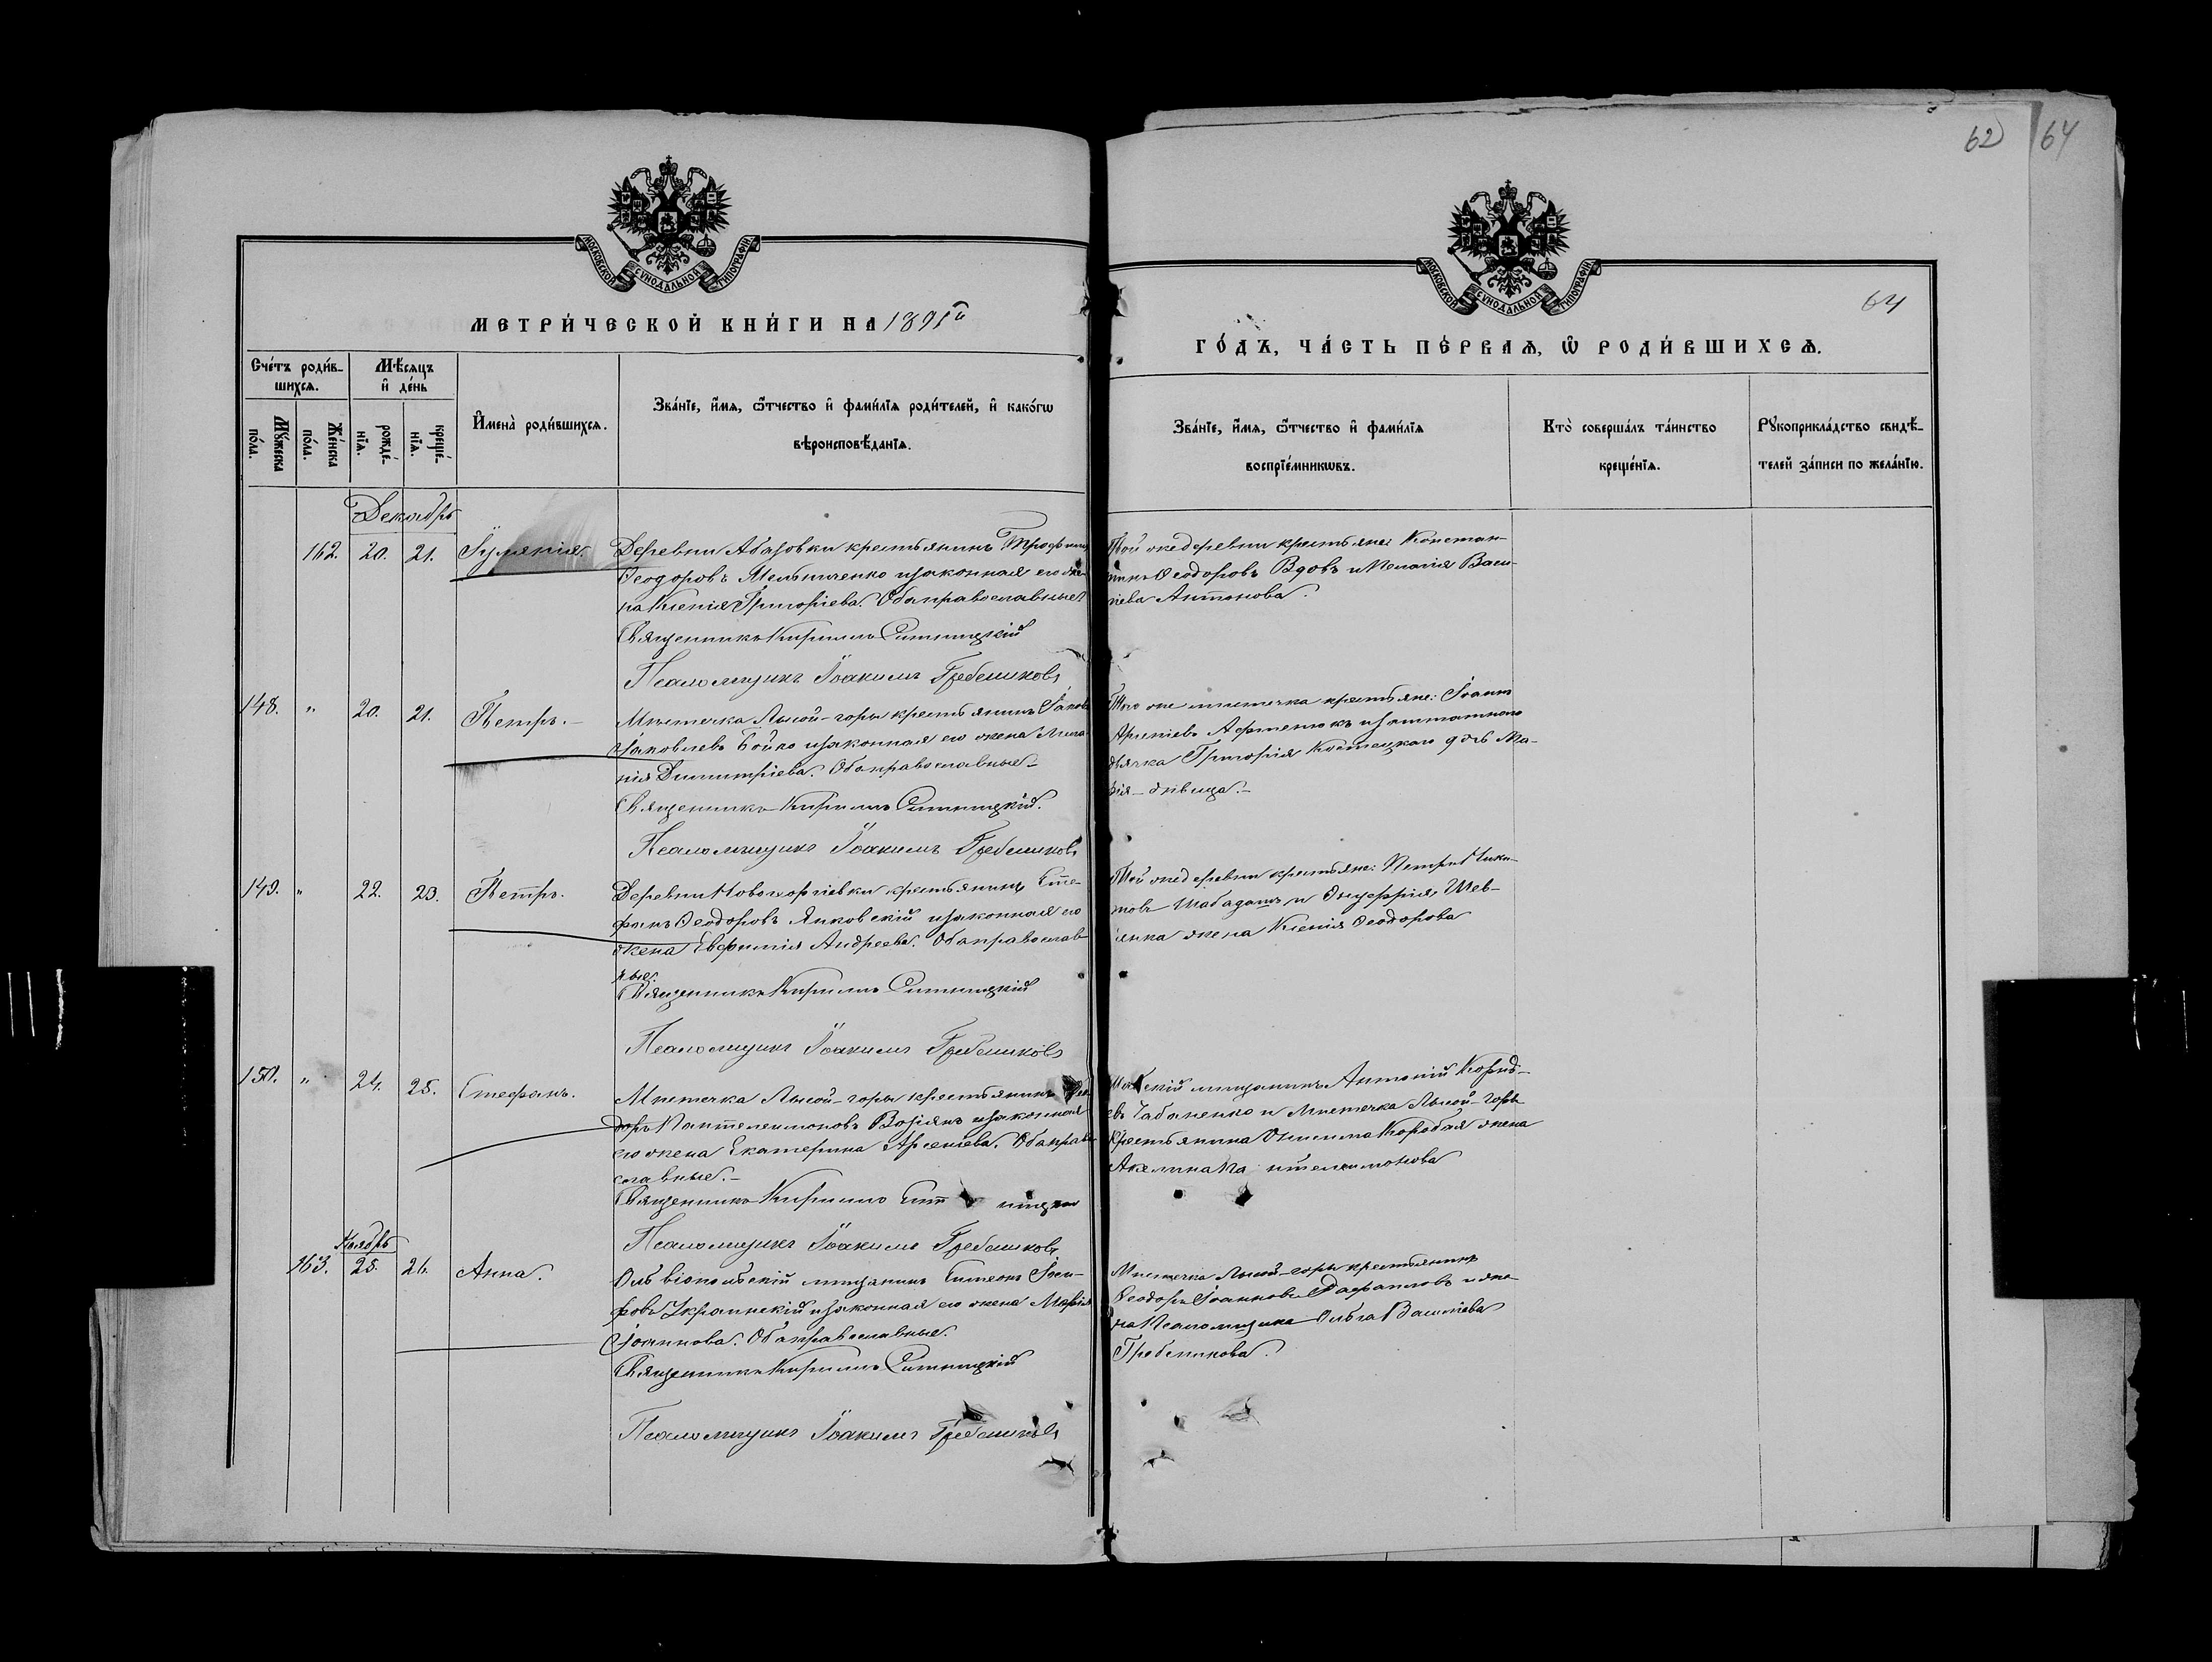 62 64
МОСКОВСКОЙ СУНОДАЛЬНОЙ ТИПОГРАФІИ
МОСКОВСКОЙ СУНОДАЛЬНОЙ ТИПОГРАФІИ
64
МЕТРИ́ЧЕСКОЙ КНИ́ГИ НА 1891й
ГО́ДЪ, ЧА́СТЬ ПЕ́РВАѦ, Ѡ҆ РОДИ́ВШИХСѦ.
Сче́тъ роди́в-
шихсѧ.
Мѣ́сѧцъ
и҆ де́нь
Мꙋ́жеска по́ла.
Же́нска по́ла.
рожде́-нїѧ.
креще́-нїѧ.
И҆мена̀ роди́вшихсѧ.
Зва́нїе, и҆́мѧ, ѻ҆́тчество и҆ фами́лїѧ роди́телей, и҆ како́гѡ
вѣроисповѣ́данїѧ.
Зва́нїе, и҆́мѧ, ѻ҆́тчество и҆ фами́лїѧ
воспрїе́мникѡвъ.
Кто̀ соверша́лъ та́инство
креще́нїѧ.
Рꙋкоприкла́дство свидѣ́-
телей за́писи по жела́нїю.
Декабрь
162. 20. 21. Іуліянія. Деревни Абазовки крестьянинъ Трофимъ
Ѳеодоровъ Мельниченко и законная его же-
на Ксенія Григоріева. Оба православные
Священникъ Кириллъ Ситницкій
Псаломщикъ Іоакимъ Гребенниковъ
Той же деревни крестьяне: Констан-
тинъ Ѳеодоровъ Вдовъ и Пелагія Васи-
ліева Антонова.
148. " 20. 21. Петръ.- Мѣстечка Лысой-горы крестьянинъ Іаковъ
Іаковлевъ Бойко и законная его жена Мела-
нія Димитріева. Оба православные-
Священникъ Кириллъ Ситницкій.
Псаломщикъ Іоакимъ Гребенниковъ
Того же мѣстечка крестьяне: Іоаннъ
Арсеніевъ Афтенюкъ и заштатнаго
дьячка Григорія Костецкаго дочь Ма-
рія-дѣвица.-
149. " 22. 23. Петръ. Деревни Новогеоргіевки крестьянинъ Сте-
фанъ Ѳеодоровъ Янковскій и законная его
жена Евфимія Андреева. Оба православ-
ные.
Священникъ Кириллъ Ситницкій
Псаломщикъ Іоакимъ Гребенниковъ
Той же деревни крестьяне: Петръ Ники-
товъ и Онуфрія Шев-
жена Ксенія Ѳеодорова
150. " 24. 25. Стефанъ. Мѣстечка Лысой-горы крестьянинъ Ѳео-
доръ Пантелеимоновъ Возіянъ и законная
его жена Екатерина Арсеніева. Оба право-
славные.-
Священникъ Кириллъ Ситницкій
Псаломщикъ Іоакимъ Гребенниковъ
мѣщанинъ Антоній
Чабаненко и мѣстечка Лысой-горы
крестьянина Онисима Коробая жена
Акилина Пантелеимонова
Ноябрь
163. 25. 26. Анна. Ольвіопольскій мѣщанинъ Симеонъ Іоси-
фовъ Украинскій и законная его жена Марія
Іоаннова. Оба православные.
Священникъ Кириллъ Ситницкій
Псаломщикъ Іоакимъ Гребенниковъ
Мѣстечка Лысой-горы крестьянинъ
Ѳеодоръ Іоанновъ Рафаиловъ и же-
на Псаломщика Ольга Василіева
Гребенникова.